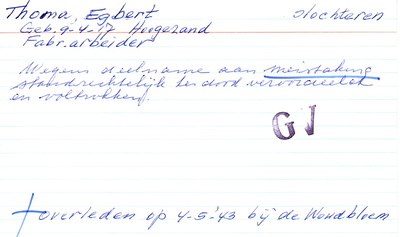 Thoma, Egbert Slochteren
Geb. 9-4-17 Hoogezand
Fabr. arbeider
Wegens deelname aan meistaking
standrechtelijk ter dood veroordeeld
en voltrokken.
GV
+ overleden op 4-5-'43 bij de Woudbloem